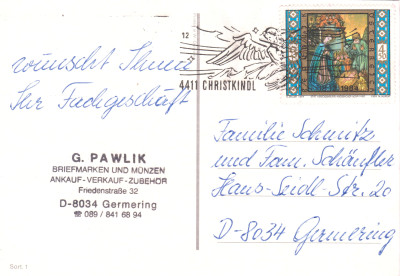 wünscht Ihnen
Ihr Fachgeschäft
G. PAWLIK
BRIEFMARKEN UND MÜNZEN
ANKAUF-VERKAUF-ZUBEHÖR
Friedenstraße 32
D-8034 Germering
☎ 089 / 841 68 94
Sort 1
12
4411 CHRISTKINDL
Familie Schmitz
und Fam. Schäufler
Hans-Seidl-Str. 20
D-8034 Germering